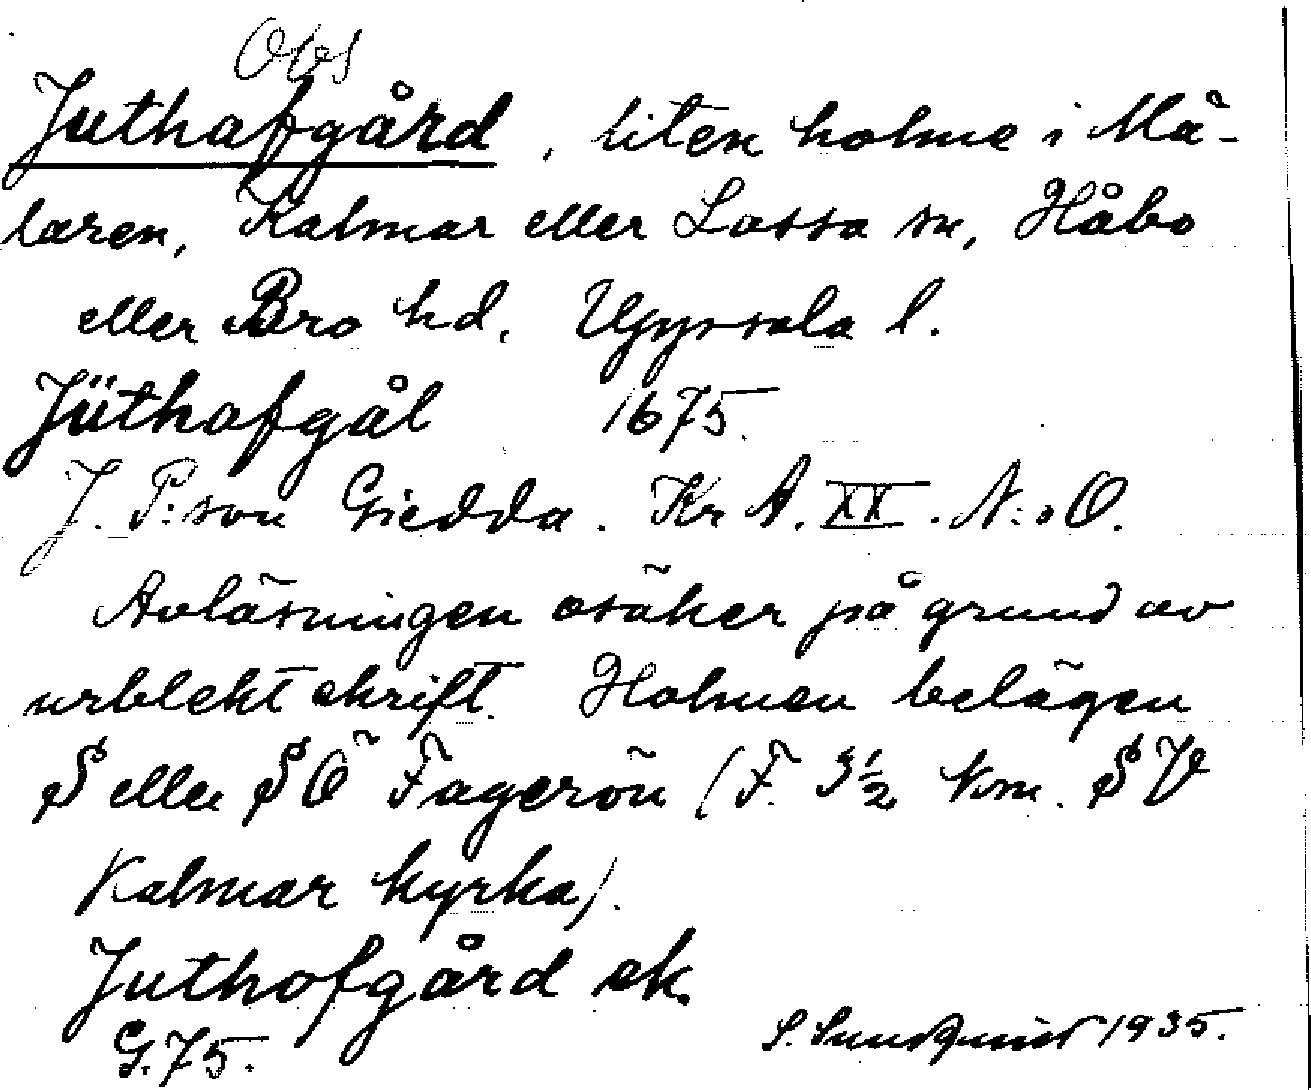 Obs
Juthafgård, liten holme i Mä-
laren, Kalmar eller Lossa sn, Håbo
eller Bro hd, Uppsala l.
Jüthofgål 1675.
J. P:son Giedda. Kr A. XX. N:o O.
Avläsningen osäker på grund av
urblekt skrift. Holmen belägen
S eller SÖ Fagerön (F. 3½ km. SV
Kalmar kyrka).
Juthofgård ek.
G.75. S. Sundquist 1935.